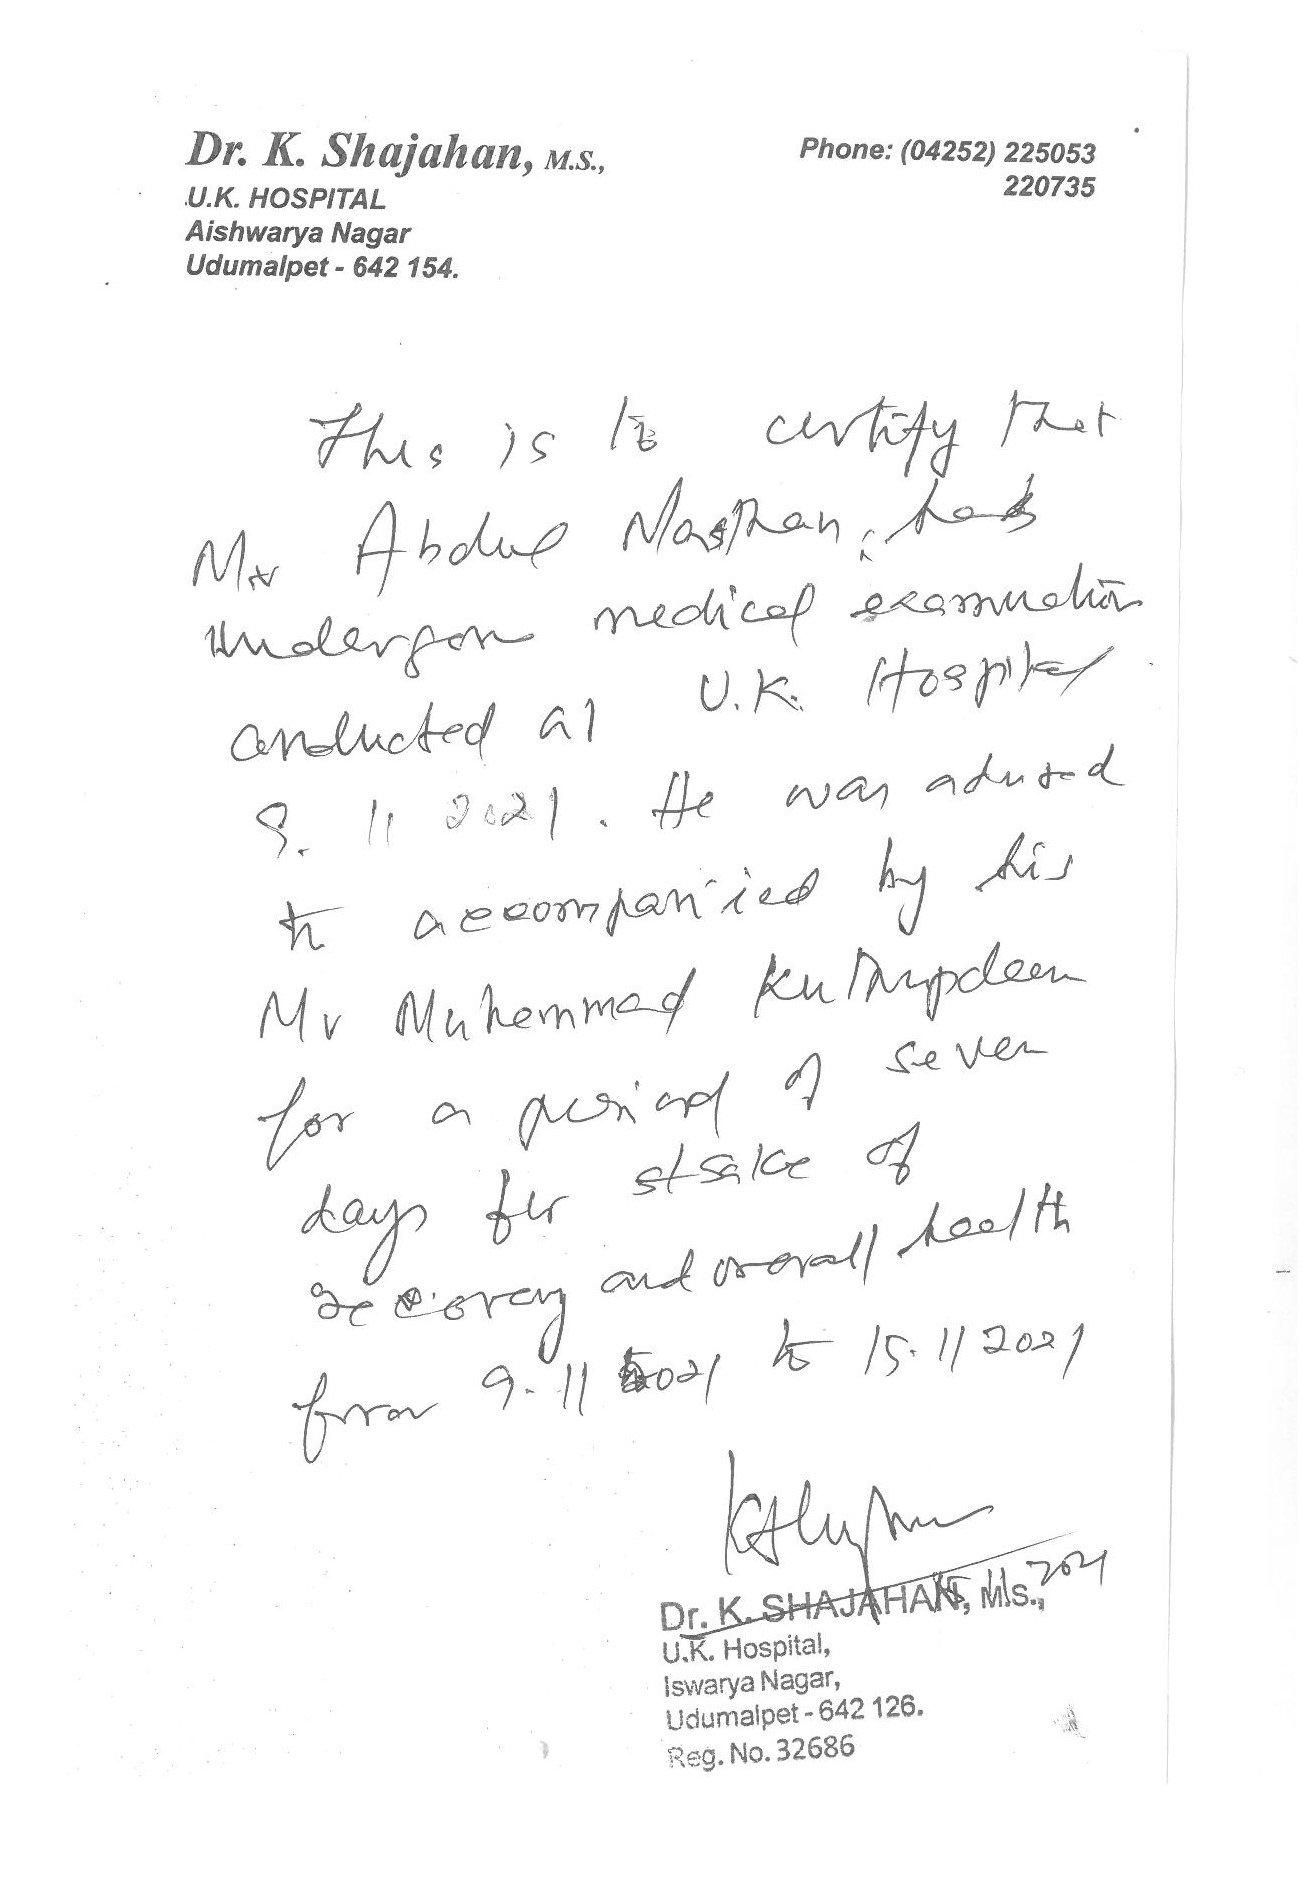 Dr. K. Shajahan, M.S.,
Phone: (04252) 225053
220735
U.K. HOSPITAL
Aishwarya Nagar
Udumalpet - 642 154.
This is to certify that
Mr Abdul Masthan, has
undergone medical examination
conducted at U.K. Hospital
9. 11 2021. He was advised
to accompanied by his
Mr Muhammad Kuthupdeen
for a period of seven
days for sake of
recovery and overall health
from 9.11 2021 to 15.11 2021
Dr. K. SHAJAHAN, M.S.,
U.K. Hospital,
Iswarya Nagar,
Udumalpet - 642 126.
Reg. No. 32686